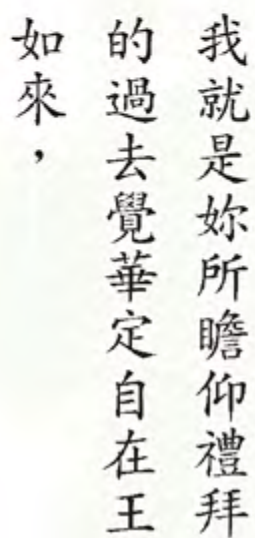 我就是妳所瞻仰禮拜
的過去覺華定自在王
如來，